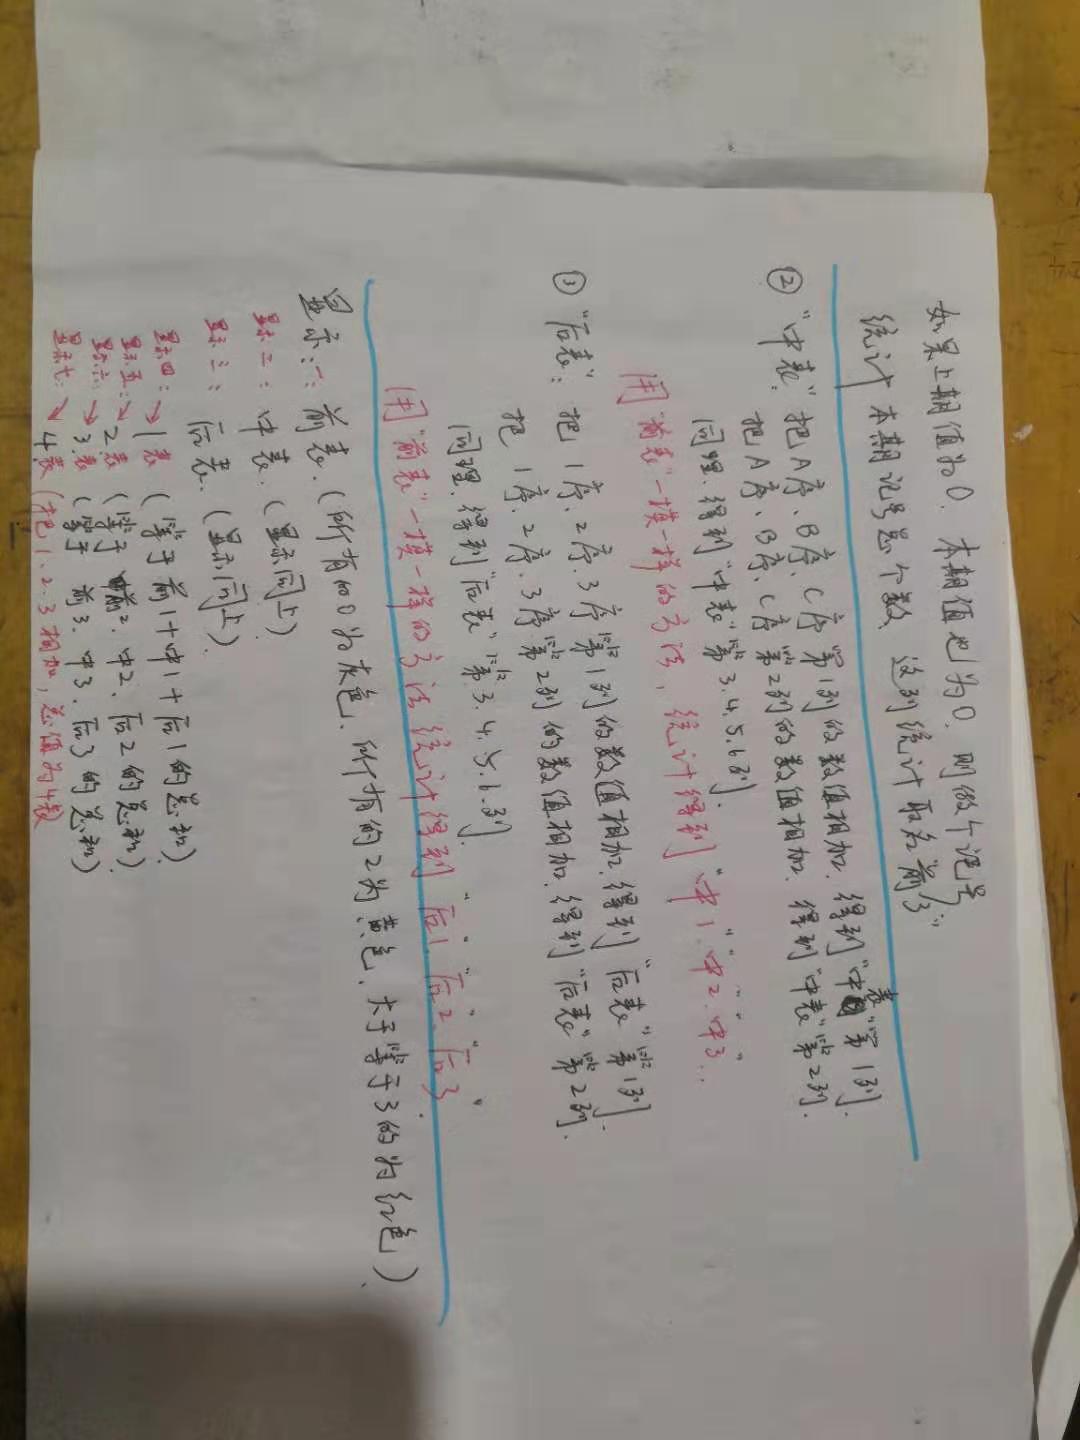 如果上期值为0. 本期值也为0. 则做个记号
统计本期记号总个数、这列统计取名"前3"
② "中表": 把A序、B序、C序第1列的数值相加. 得到"中表"第1列.
把A序、B序、C序第2列的数值相加. 得到"中表"第2列.
同理. 得到"中表"第3.4.5.6列.
用"前表"一模一样的方法, 统计得到"中1"、"中2"、"中3"..
③ "后表": 把1序、2序、3序第1列的数值相加. 得到"后表"第1列.
把1序、2序、3序第2列的数值相加. 得到"后表"第2列.
同理. 得到"后表"第3.4.5.6.列.
用"前表"一模一样的方法统计得到"后1"、"后2"、"后3".
显示:一: 前表. (所有的0为灰色. 所有的2为黄色、大于等于3的为红色).
显示二: 中表. (显示同上).
显示三: 后表. (显示同上).
显示四: → 1表 (等于前1+中1+后1的总和).
显示五: → 2表 (等于前2、中2、后2的总和).
显示六: → 3表 (等于前3、中3、后3的总和)
显示七: → 4表 (把1.2.3相加, 总值为4表)